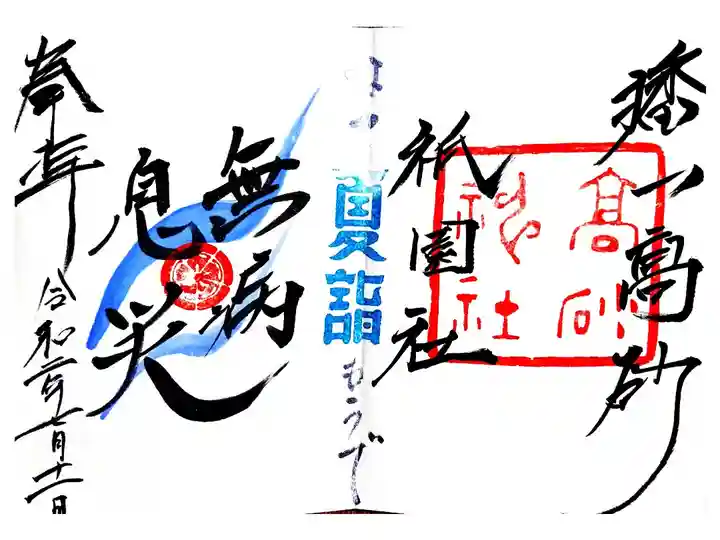 播 高砂
髙砂
神社
祇園社
なつ 夏詣 もうで
無病
息災
奉拝 令和二年七月十一日